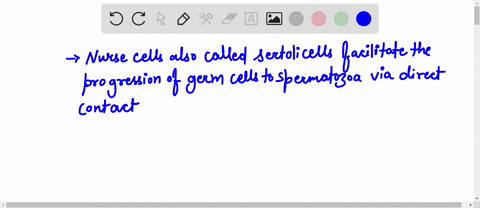 → Nurse cells also called sertolicells facilitate the
progression of germ cells to spermatozoa via direct
contact